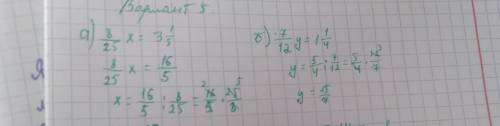 Вариант 5
а) 8/25 x = 3 1/5
8/25 x = 16/5
x = 16/5 : 8/25 = 16/5 · 25/8
б) 7/12 y = 1 1/4
y = 5/4 : 7/12 = 5/4 · 12/7
y = 15/7